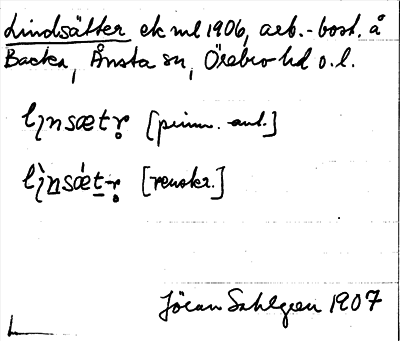 Lindsätter ek ml 1906, arb.-bost. å
Backa, Ånsta sn, Örebro hd o.l.
lı̣nsætr̥ [prim. ant.]
lı̣̀nsǽtr̥ [renskr.]
Jöran Sahlgren 1907